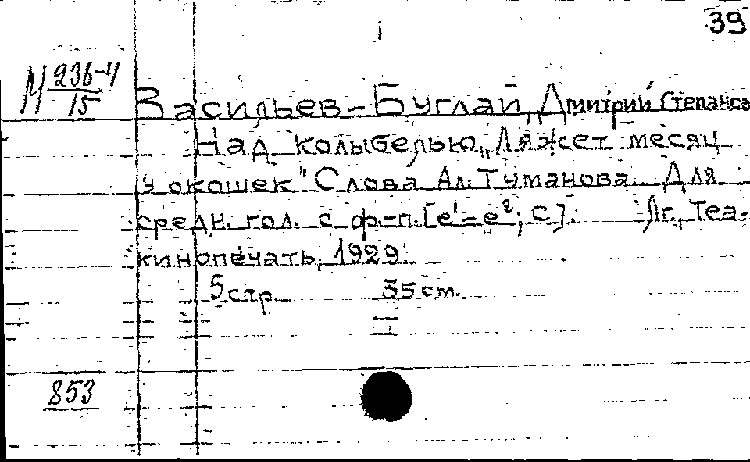 39
М 236-4/15
Васильев-Буглай, Дмитрий Степанов
Над колыбелью "Ляжет месяц
у окошек" Слова Ал. Туманова. Для
средн. гол. с ф-п. [e¹-e²; c]. Лг., Теа-
кинопечать, 1929.
5 стр. 35 ст.
853